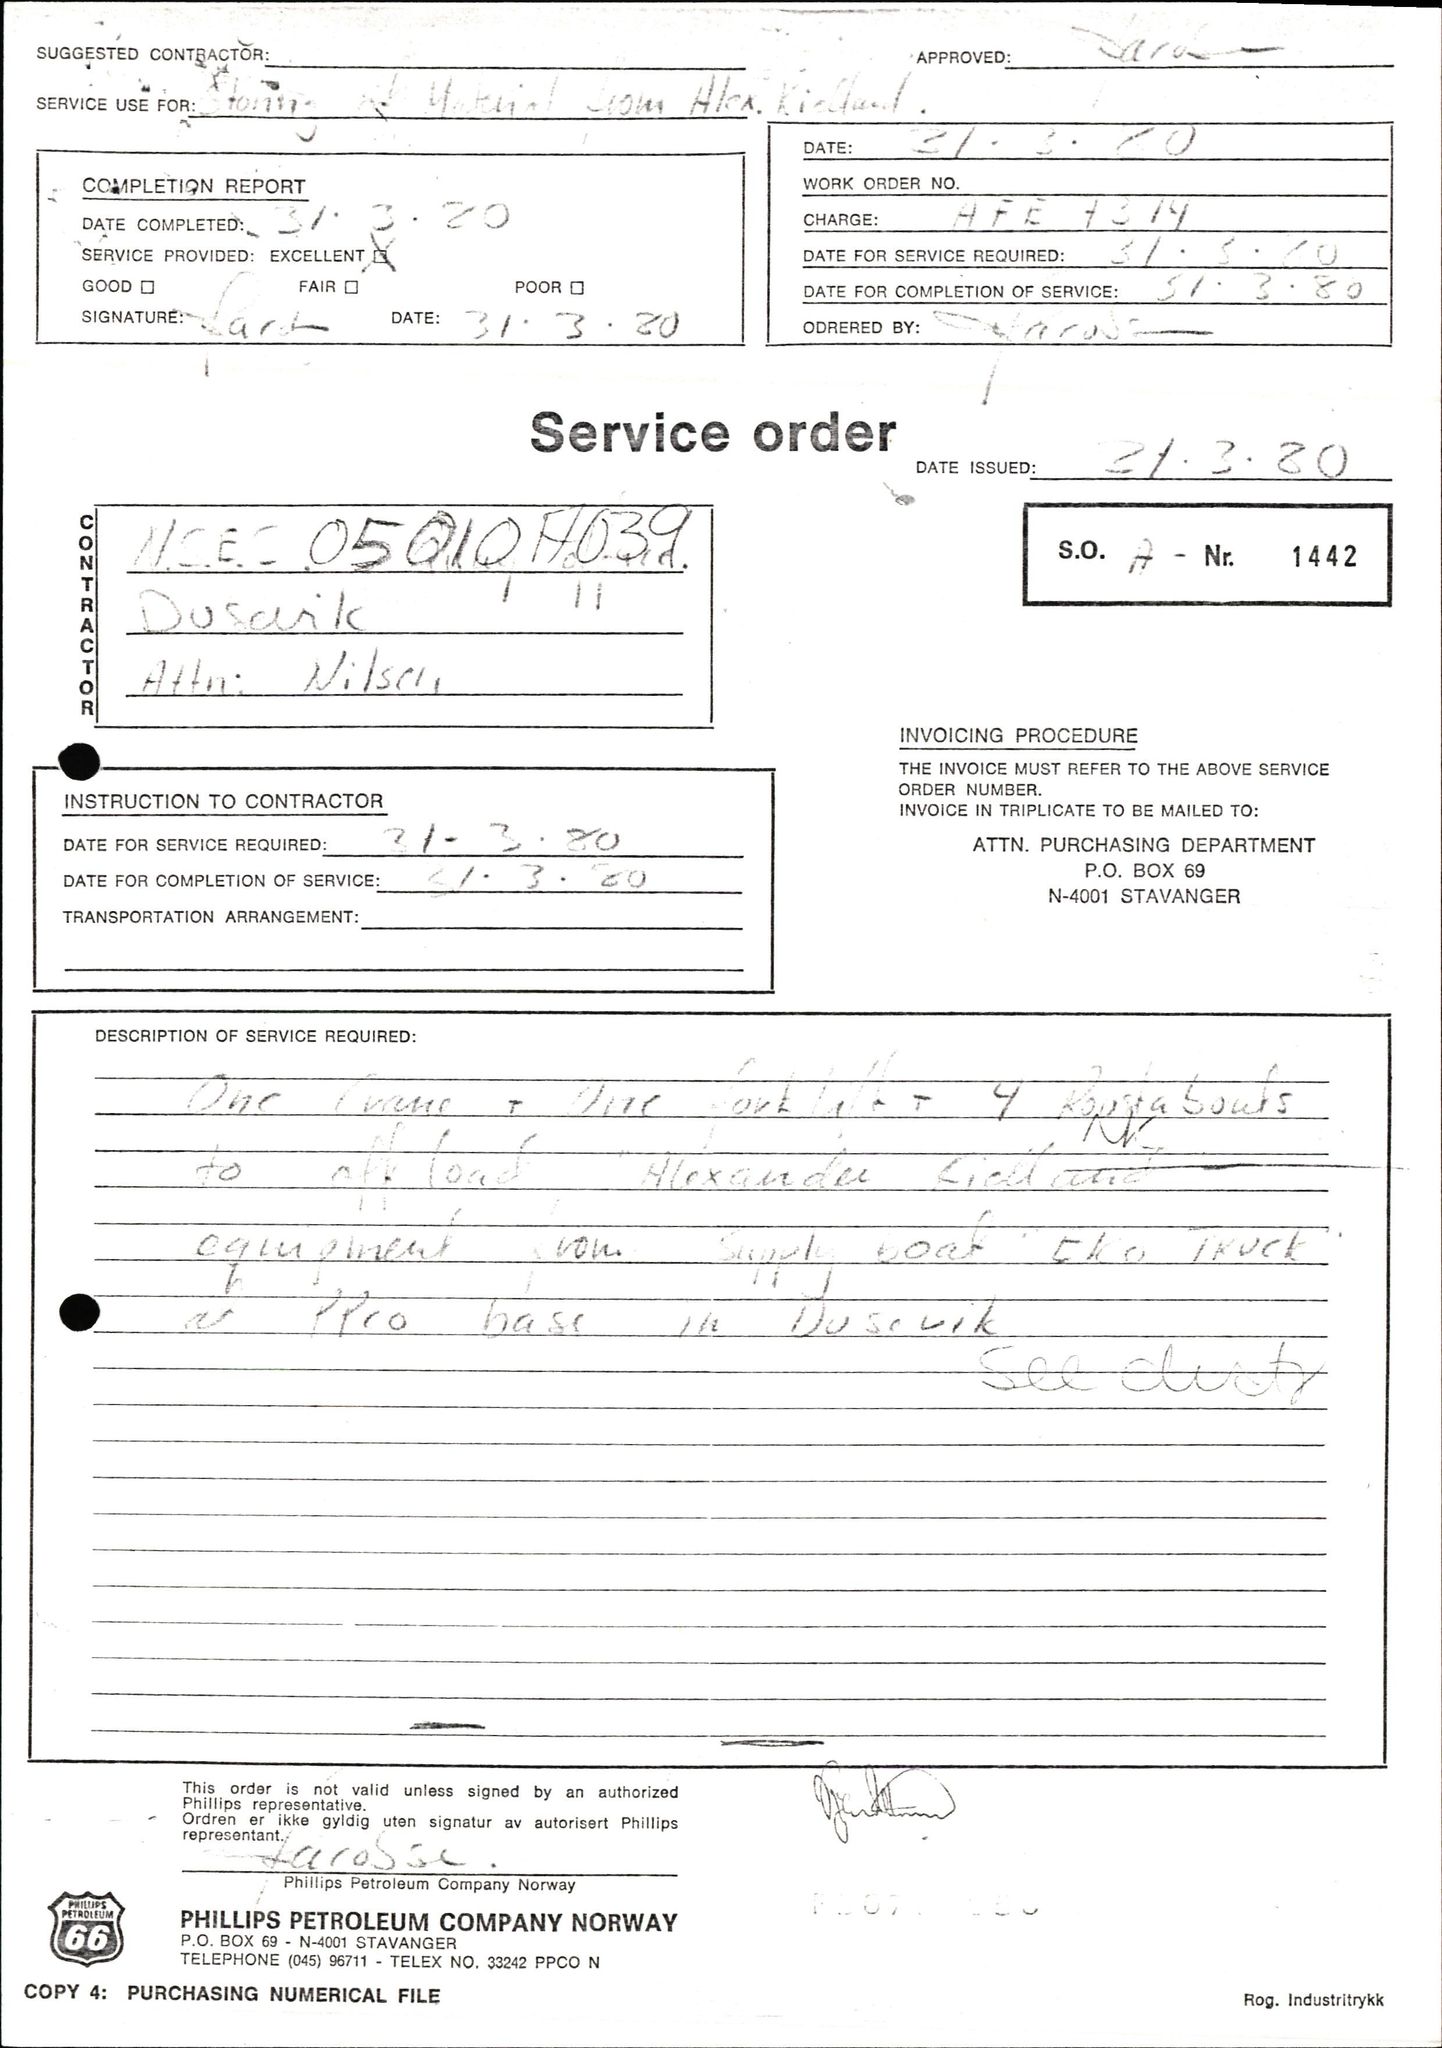 SUGGESTED CONTRACTOR:
APPROVED:
SERVICE USE FOR: Storing of Material from Alex. Kielland.
DATE: 31.3.80
WORK ORDER NO.
CHARGE: AFE 7314
DATE FOR SERVICE REQUIRED: 31.3.80
DATE FOR COMPLETION OF SERVICE: 31.3.80
ODRERED BY: Jacobse
COMPLETION REPORT
DATE COMPLETED: 31.3.80
SERVICE PROVIDED: EXCELLENT X
GOOD FAIR POOR
SIGNATURE: DATE: 31.3.80
Service order
DATE ISSUED: 31.3.80
CONTRACTOR
05010 A039
Dusavik
Attn: Nilsen
S.O. A - Nr. 1442
INVOICING PROCEDURE
THE INVOICE MUST REFER TO THE ABOVE SERVICE
ORDER NUMBER.
INVOICE IN TRIPLICATE TO BE MAILED TO:
ATTN. PURCHASING DEPARTMENT
P.O. BOX 69
N-4001 STAVANGER
INSTRUCTION TO CONTRACTOR
DATE FOR SERVICE REQUIRED: 31-3.80
DATE FOR COMPLETION OF SERVICE: 31.3.80
TRANSPORTATION ARRANGEMENT:
DESCRIPTION OF SERVICE REQUIRED:
One Crane + One forklift + 4 Roustabouts
to off load "Alexander Kielland"
equipment from Supply boat "Eko Truck"
at PPco base in Dusevik
See
This order is not valid unless signed by an authorized
Phillips representative.
Ordren er ikke gyldig uten signatur av autorisert Phillips
representant.
Jacobse.
Phillips Petroleum Company Norway
PHILLIPS
PETROLEUM
66
PHILLIPS PETROLEUM COMPANY NORWAY
P.O. BOX 69 - N-4001 STAVANGER
TELEPHONE (045) 96711 - TELEX NO. 33242 PPCO N
COPY 4: PURCHASING NUMERICAL FILE
Rog. Industritrykk